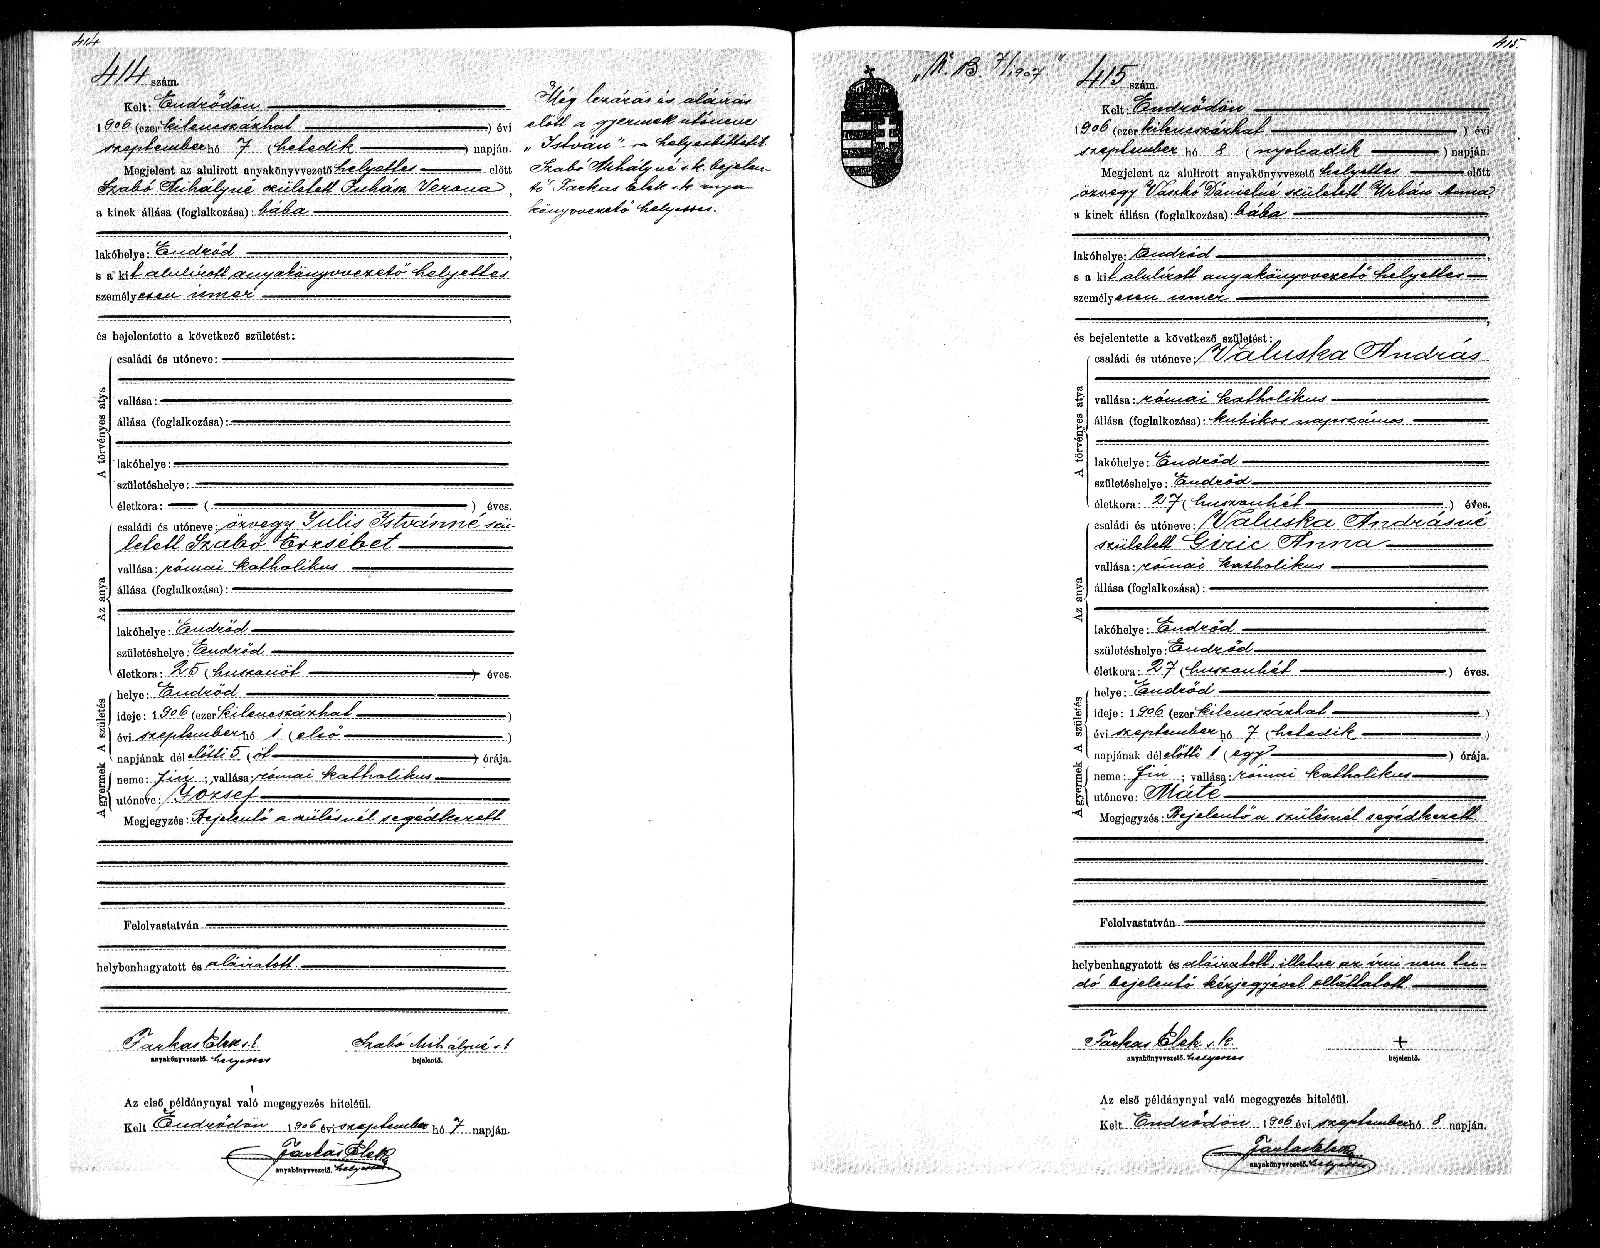 414
414 szám.
Kelt: Endrődön
1906 (ezer kilencszázhat ) évi
szeptember hó 7 (hetedik ) napján.
Megjelent az alulirott anyakönyvvezető helyettes előtt
Szabó Mihályné született Juhász Verona,
a kinek állása (foglalkozása): bába
,
lakóhelye: Endrőd ,
s a kit alulírott anyakönyvvezető helyettes
személyesen ismer
,
és bejelentette a következő születést:
A törvényes atya
családi és utóneve:
vallása:
állása (foglalkozása):
lakóhelye:
születéshelye:
életkora: ( ) éves.
Az anya
családi és utóneve: özvegy Julis Istvánné szü-
letett Szabó Erzsébet
vallása: római katholikus
állása (foglalkozása):
lakóhelye: Endrőd
születéshelye: Endrőd
életkora: 25 (huszonöt ) éves.
A születés
helye: Endrőd
ideje: 1906 (ezer kilencszázhat )
évi szeptember hó 1 (első )
napjának dél előtti 5 (öt ) órája.
A gyermek
neme: fiú; vallása: római katholikus
utóneve: József
Megjegyzés: Bejelentő a szülésnél segédkezett
Felolvastatván
helybenhagyatott és aláíratott.
Farkas Elek s. k. Szabó Mihályné s. k.
anyakönyvvezető. helyettes bejelentő.
Az első példánynyal való megegyezés hiteléül.
Kelt Endrődön 1906 évi szeptember hó 7 napján.
Farkas Elek
anyakönyvvezető. helyettes
Még lezárás és aláírás
előtt a gyermek utóneve
„István"-ra helyesbíttetik.
Szabó Mihályné s. k. bejelen-
tő Farkas Elek s. k. anya
könyvvezető helyettes.
„K. B. 7/1907"
415.
415 szám.
Kelt: Endrődön
1906 (ezer kilencszázhat ) évi
szeptember hó 8 (nyolcadik ) napján.
Megjelent az alulirott anyakönyvvezető helyettes előtt
özvegy Vaszkó Dánielné született Urbán Anna,
a kinek állása (foglalkozása): bába
,
lakóhelye: Endrőd ,
s a kit alulírott anyakönyvvezető helyettes
személyesen ismer
,
és bejelentette a következő születést:
A törvényes atya
családi és utóneve: Valuska András
vallása: római katholikus
állása (foglalkozása): kubikos napszámos
lakóhelye: Endrőd
születéshelye: Endrőd
életkora: 27 (huszonhét ) éves.
Az anya
családi és utóneve: Valuska Andrásné
született Giric Anna
vallása: római katholikus
állása (foglalkozása):
lakóhelye: Endrőd
születéshelye: Endrőd
életkora: 27 (huszonhét ) éves.
A születés
helye: Endrőd
ideje: 1906 (ezer kilencszázhat )
évi szeptember hó 7 (hetedik )
napjának dél előtti 1 (egy ) órája.
A gyermek
neme: fiu; vallása: római katholikus
utóneve: Máté
Megjegyzés: Bejelentő a szülésnél segédkezett
Felolvastatván
helybenhagyatott és aláíratott, illetve az írni nem tu-
dó bejelentő kézjegyével elláttatott
Farkas Elek s. k. +
anyakönyvvezető. helyettes bejelentő.
Az első példánynyal való megegyezés hiteléül.
Kelt Endrődön 1906 évi szeptember hó 8 napján.
Farkas Elek
anyakönyvvezető. helyettes